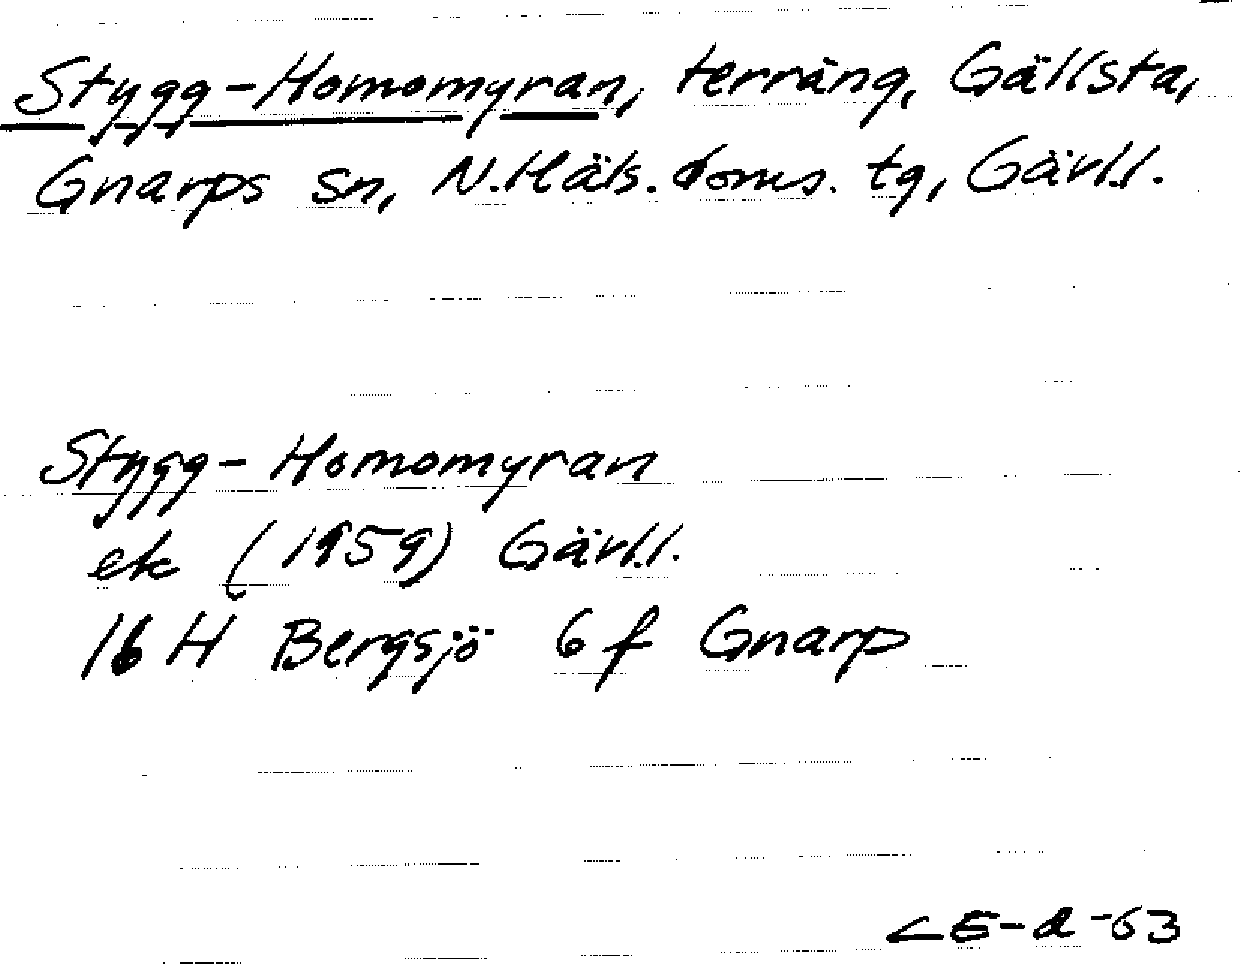 Stygg-Homomyran, terräng, Gällsta,
Gnarps sn, N.Häls. doms. tg, Gävll.
Stygg-Homomyran
ek (1959) Gävll.
16 H Bergsjö 6 f Gnarp
-63